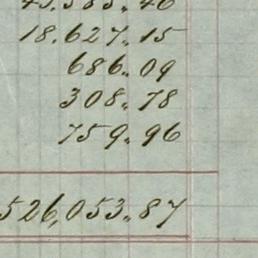 45.585.. 46
18.627.. 15
686.. 09
308.. 78
759.. 96
526,053.. 87